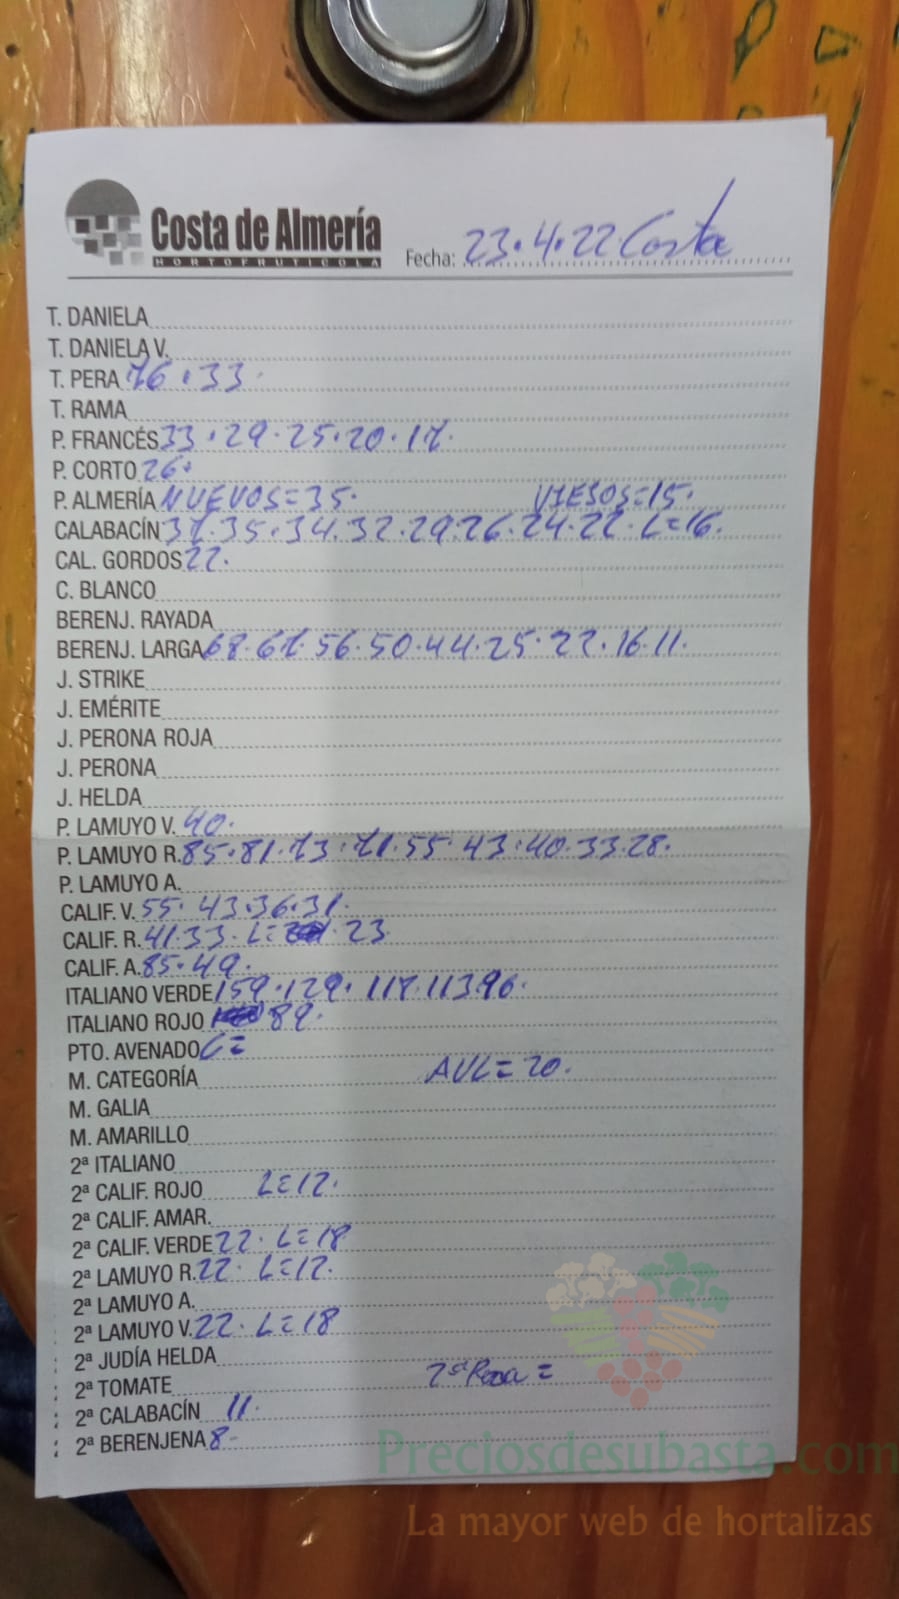 Costa de Almería
HORTOFRUTICOLA
Fecha: 23.4.22 Costa
T. DANIELA
T. DANIELA V.
T. PERA 76.33.
T. RAMA
P. FRANCÉS 33.29.25.20.17.
P. CORTO 26.
P. ALMERÍA NUEVOS=35. VIESOS=15.
CALABACÍN 37.35.34.32.29.26.24.22.L=16.
CAL. GORDOS 22.
C. BLANCO
BERENJ. RAYADA
BERENJ. LARGA 68.67.56.50.44.25.22.16.11.
J. STRIKE
J. EMÉRITE
J. PERONA ROJA
J. PERONA
J. HELDA
P. LAMUYO V. 40.
P. LAMUYO R. 85.81.73.71.55.43.40.33.28.
P. LAMUYO A.
CALIF. V. 55.43.36.31.
CALIF. R. 41.33.L= 23
CALIF. A. 85.49.
ITALIANO VERDE 159.129.117.113.96.
ITALIANO ROJO 89.
PTO. AVENADO L=
M. CATEGORÍA AVL=20.
M. GALIA
M. AMARILLO
2ª ITALIANO
2ª CALIF. ROJO L=12.
2ª CALIF. AMAR.
2ª CALIF. VERDE 22. L=18
2ª LAMUYO R. 22. L=12.
2ª LAMUYO A.
2ª LAMUYO V. 22. L=18
2ª JUDÍA HELDA
2ª TOMATE =
2ª CALABACÍN 11.
2ª BERENJENA 8-
Preciosdesubasta.com
La mayor web de hortalizas